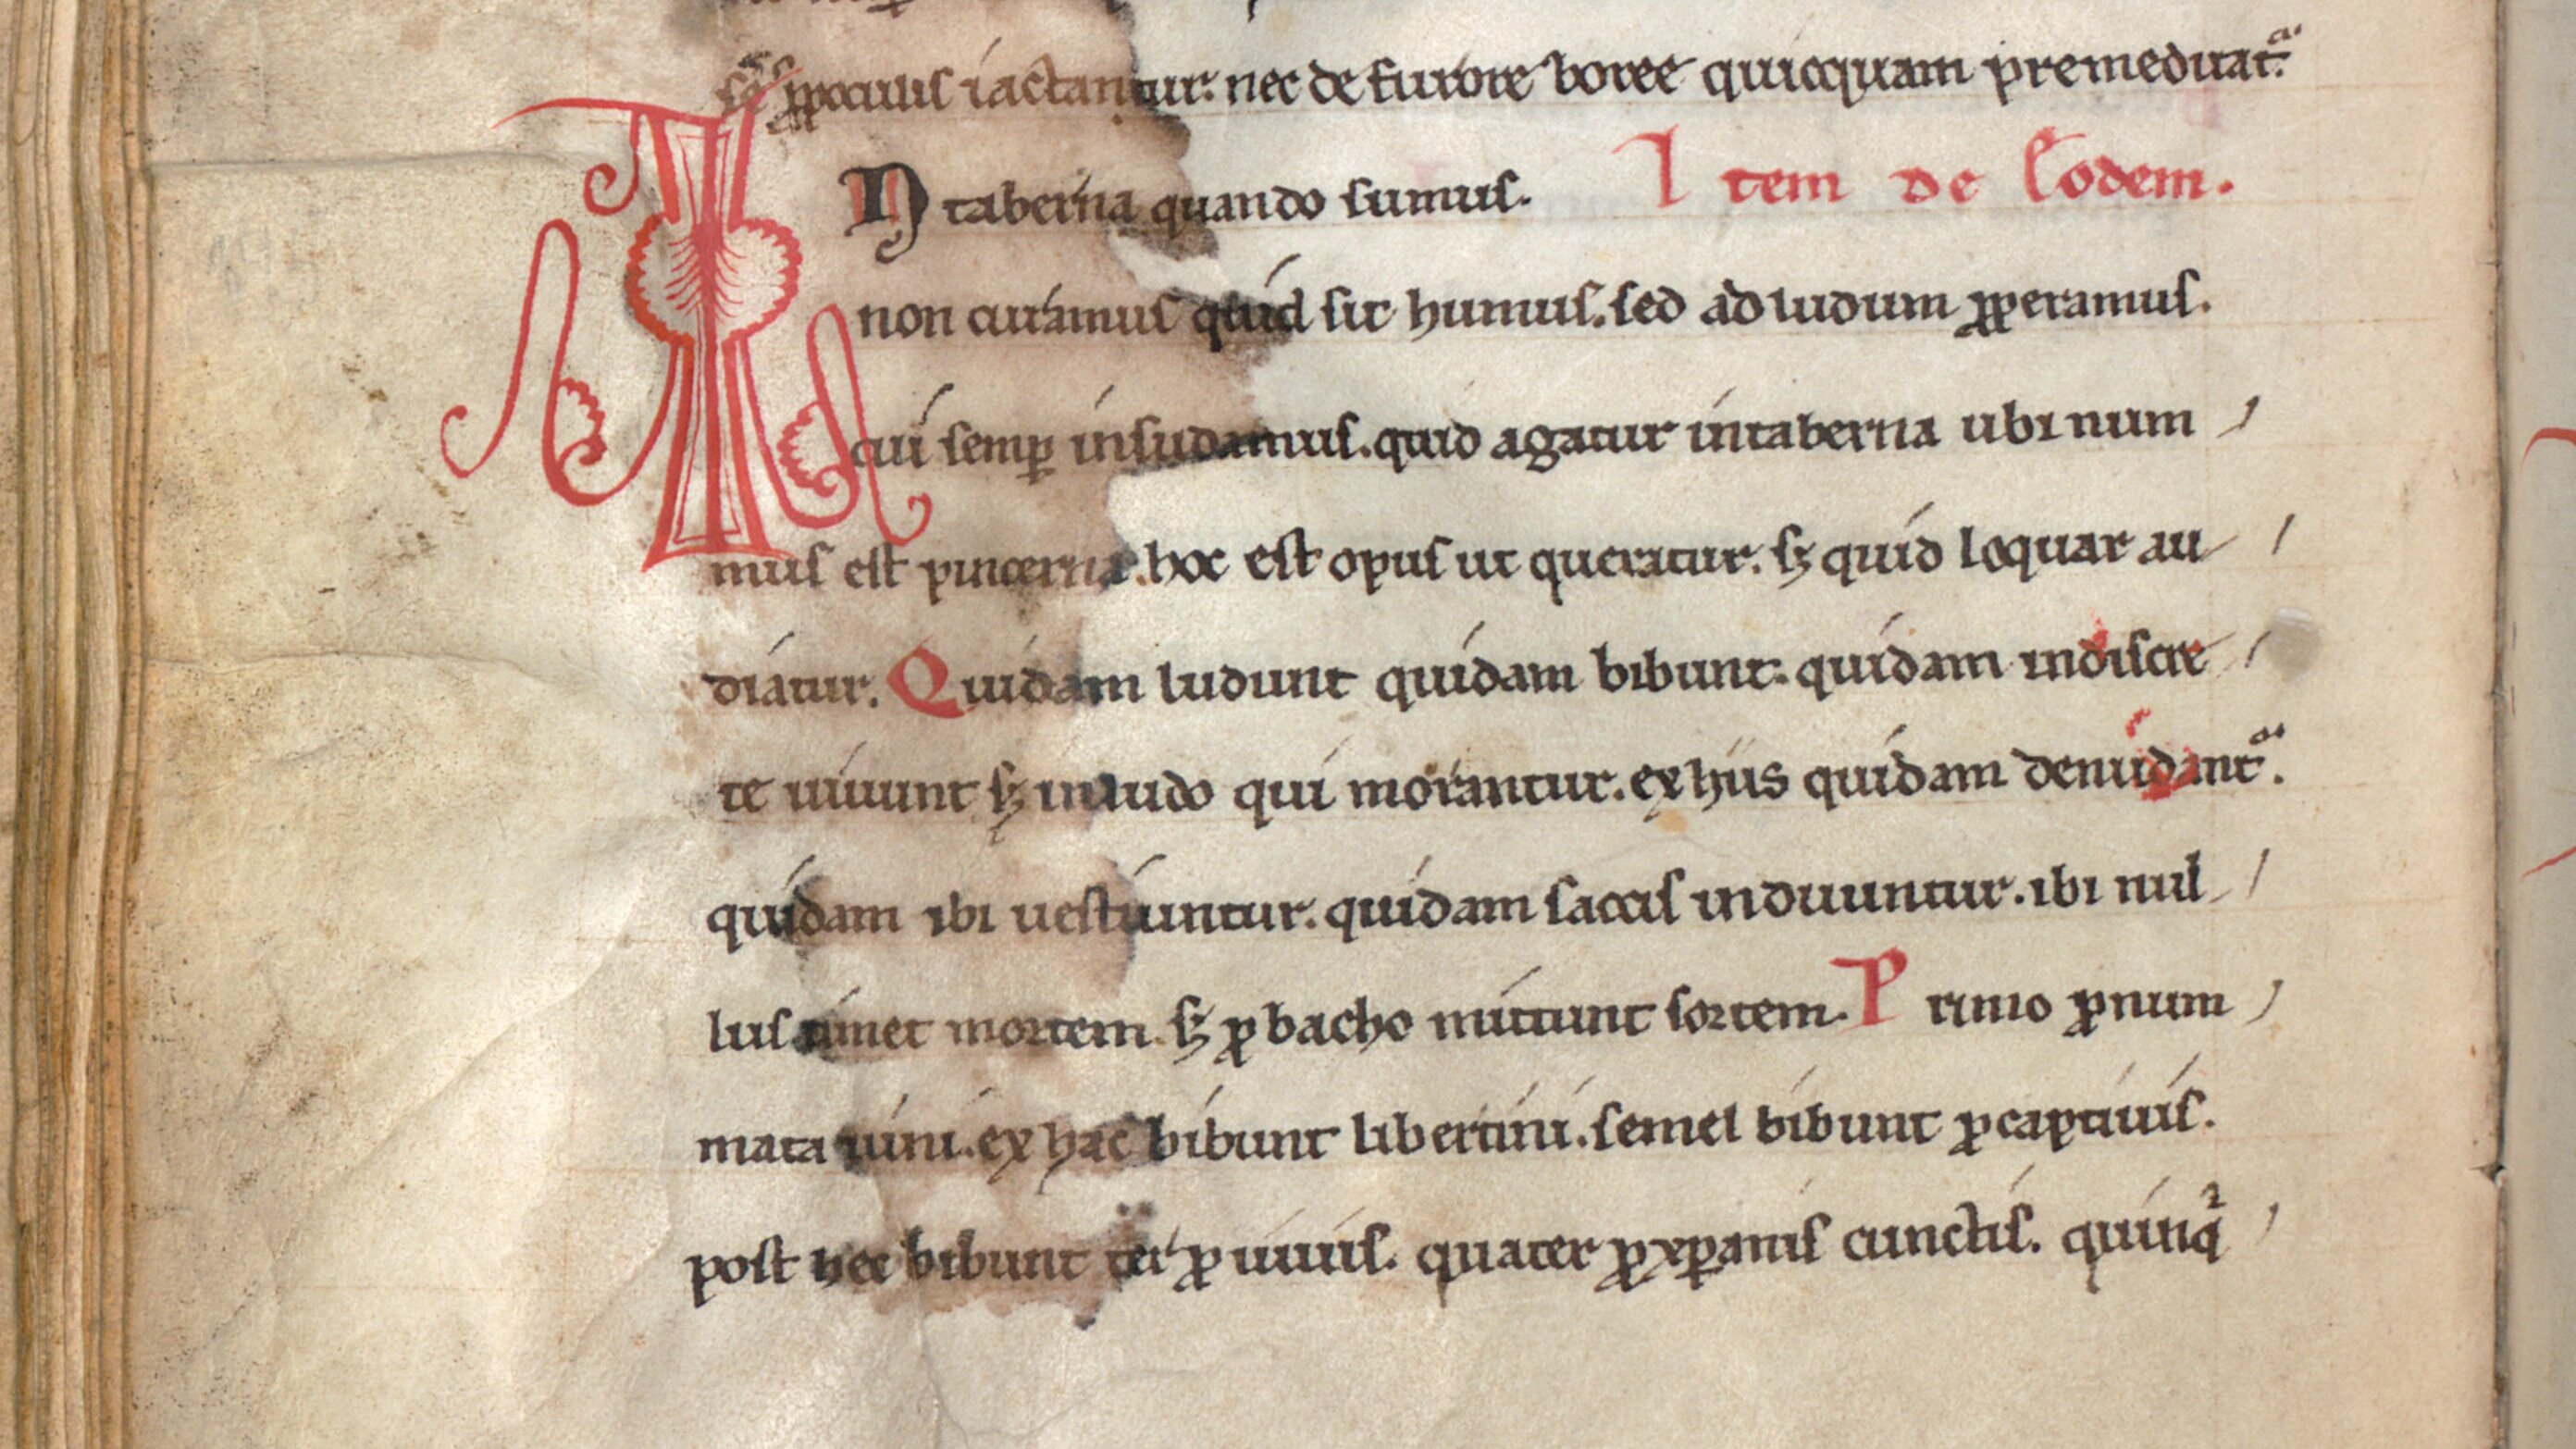 p̱poculis iactantur. nec de furore boree quicquam premeditat᷑.
IN taberna quando sumus. Item de Eodem.
non curamus quid sit humus. sed ad ludum ꝓperamus.
cui semꝑ insudamus. quid agatur intaberna ubi num
mus est pincerna. hoc est opus ut queratur. sꝫ quid loquar au
diatur. Quidam ludunt quidam bibunt. quidam indiscre
te uiuunt sꝫ inludo qui morantur. ex hiis quidam denudant᷑.
quidam ibi uestiuntur. quidam saccis induuntur. ibi nul
lus timet mortem. sꝫ ꝓ bacho mittunt sortem. Primo ꝓ num
mata uini. ex hac bibunt libertini. semel bibunt ꝓ captiuis.
post hec bibunt ter ꝓ uiuis. quater ꝓ xp̅anis cunctis. quinq̉